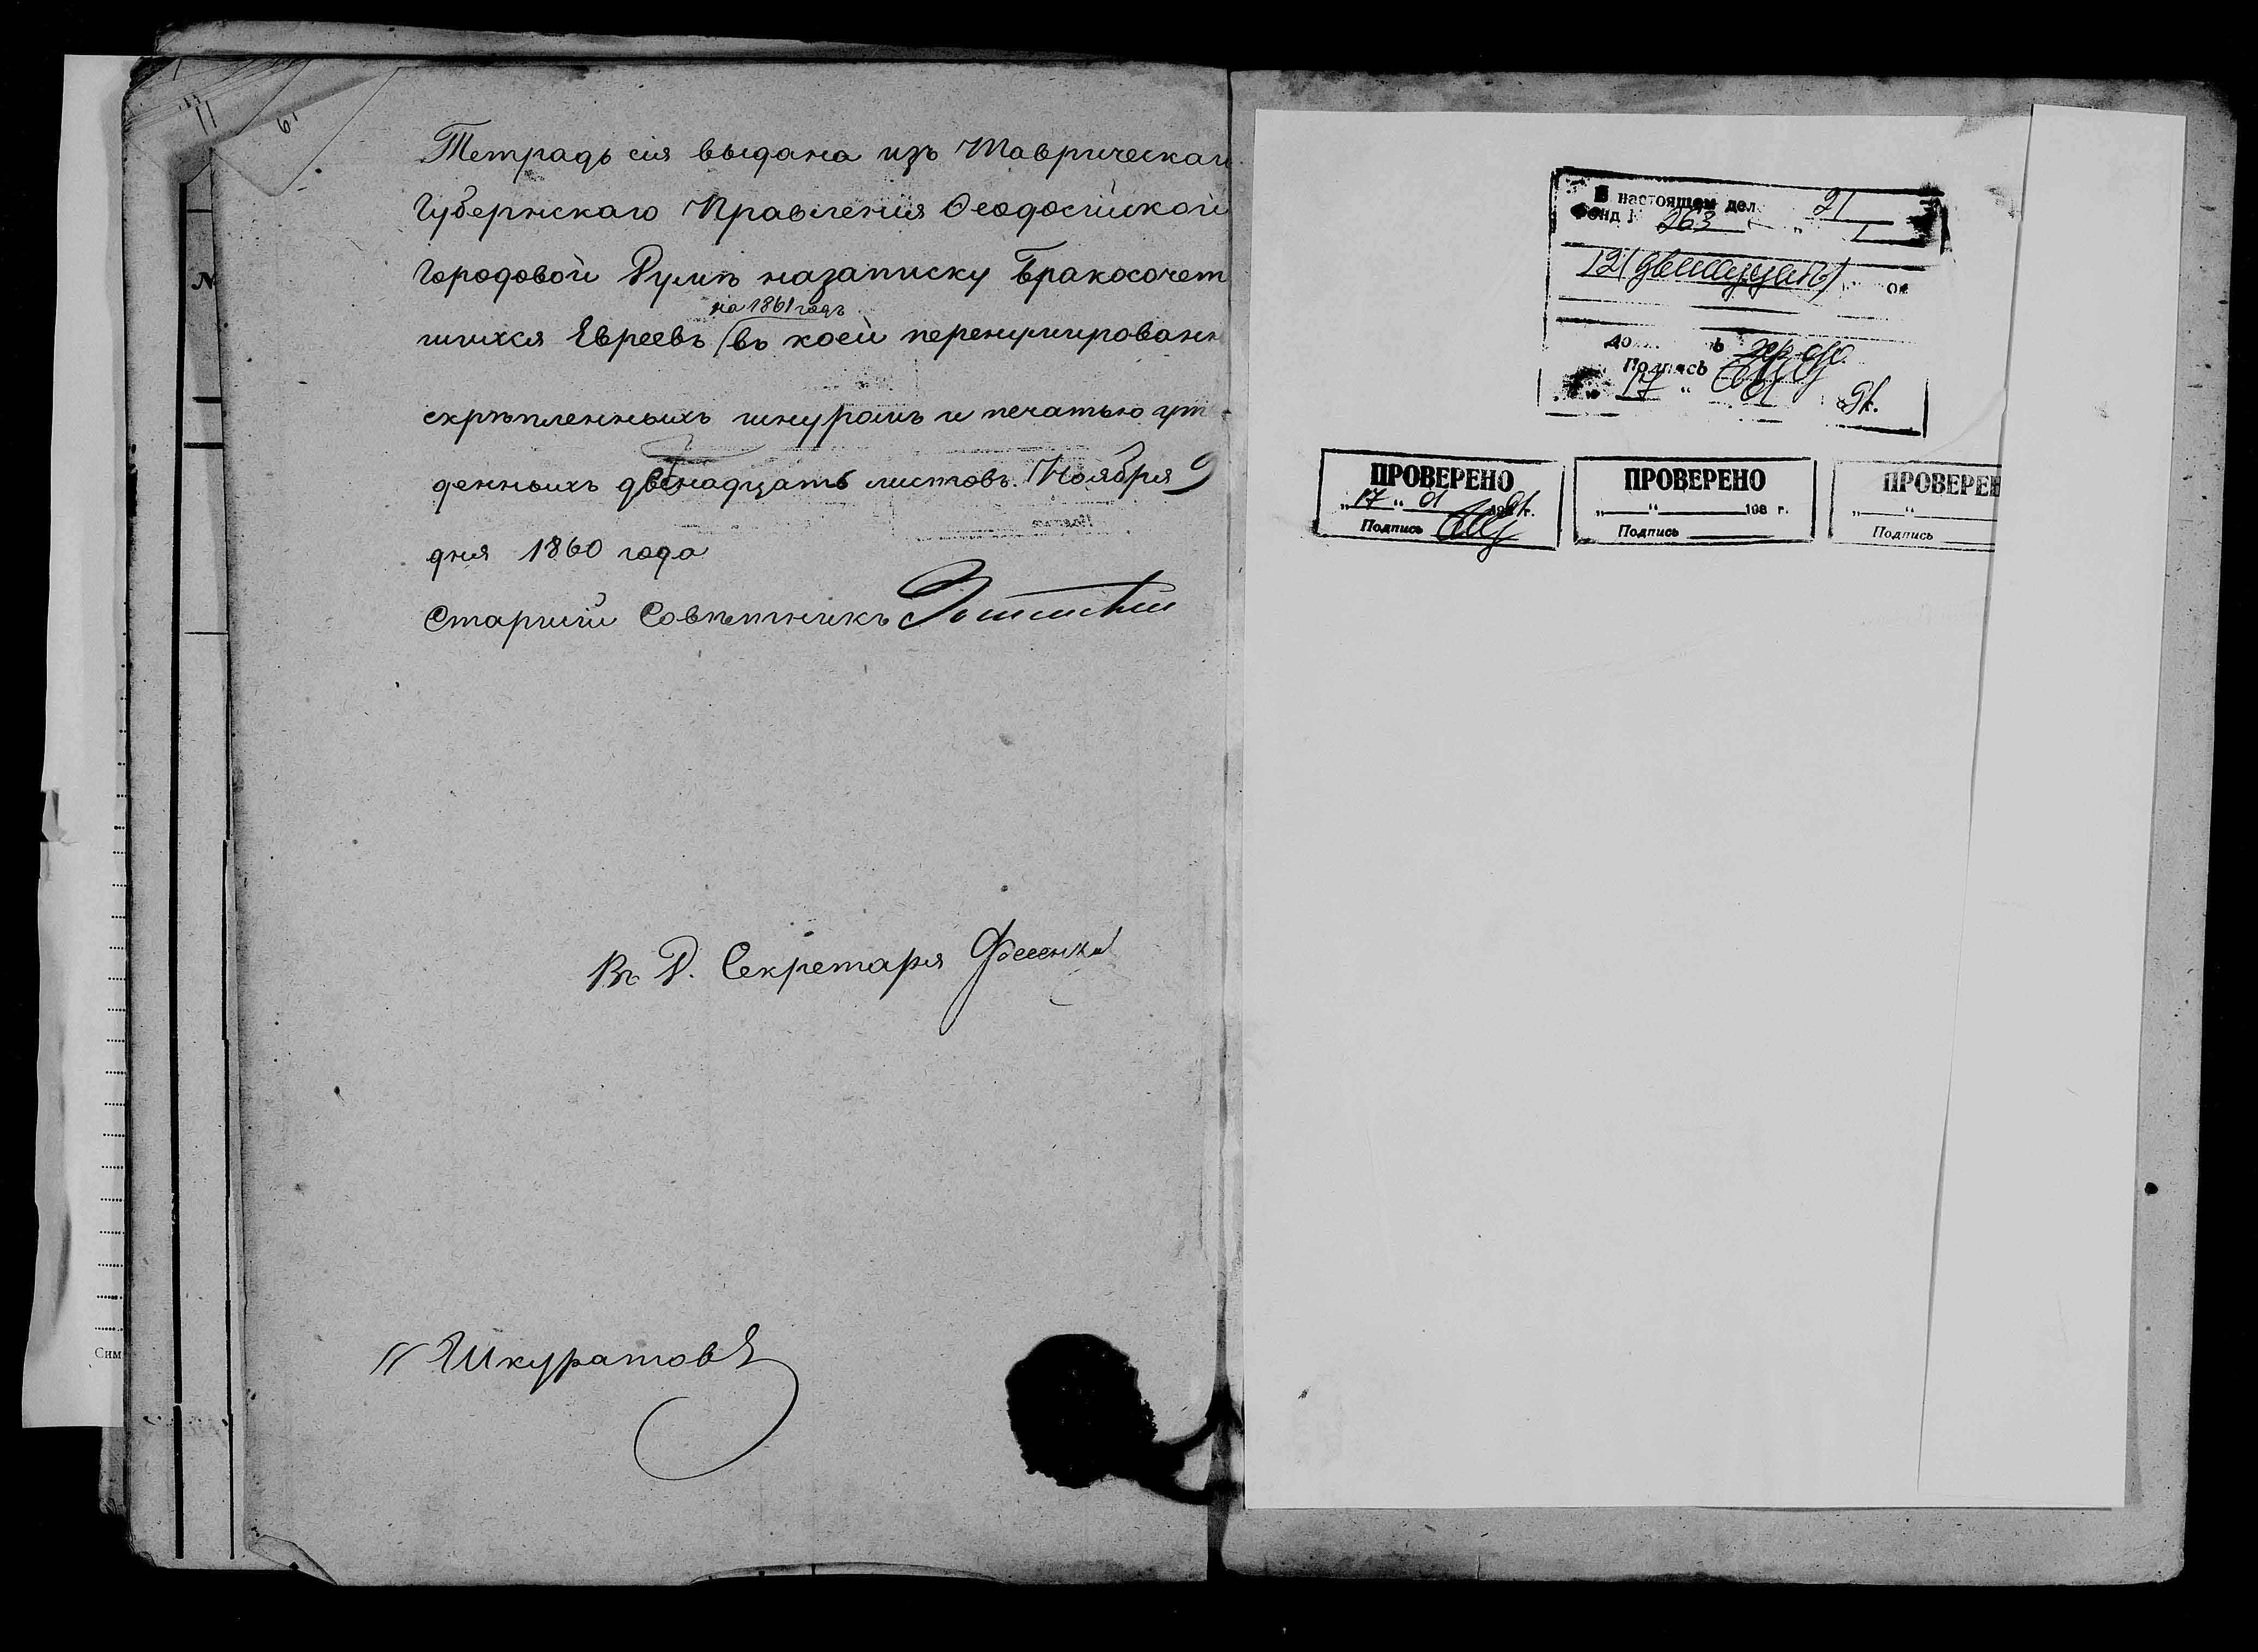 Тетрадь сія выдана изъ Таврическаг
Губернскаго Правленія Ѳеодосійской
Городовой Думѣ назаписку Бракосочет
на 1861 годъ
шихся Евреевъ въ коей перенумированн
скрѣпленныхъ шнуромъ и печатью ут
денныхъ двенадцать листовъ. Ноября 9
дня 1860 года
Старшій Совѣтникъ
Въ Д. Секретаря
Шкуратовъ
N
Сим
В настоящем дел 21
Фонд № 263
12 (двенадцать)
Подпись
17 01 91 г.
ПРОВЕРЕНО
„17“ 01 1991 г.
Подпись
ПРОВЕРЕНО
„ “ 198 г.
Подпись
ПРОВЕРЕН
„ “
Подпись